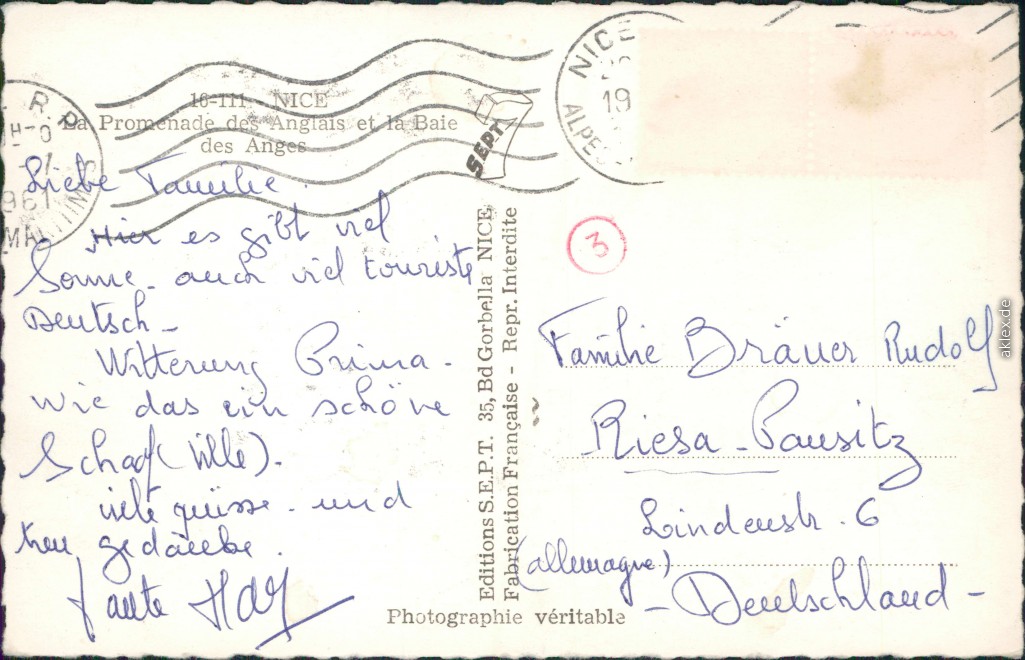 16-111 - NICE
La Promenade des Anglais et la Baie
des Anges
R. P.
1961
MARITIMES
SEPT
NICE
19
ALPES
Liebe Familie
Hier es gibt viel
Sonne - auch viel touriste
Deutsch -
Witterung Prima -
wie das ein schöne
Schaof (Ville).
viele güsse - und
gedänke.
Tante
3
Editions S.E.P.T. 35, Bd Gorbella NICE
Fabrication Française - Repr. Interdite
Familie Bräuer Rudolf
Riesa - Pausitz
Lindenstr. 6
(allemagne)
- Deutschland -
Photographie véritable
aklex.de